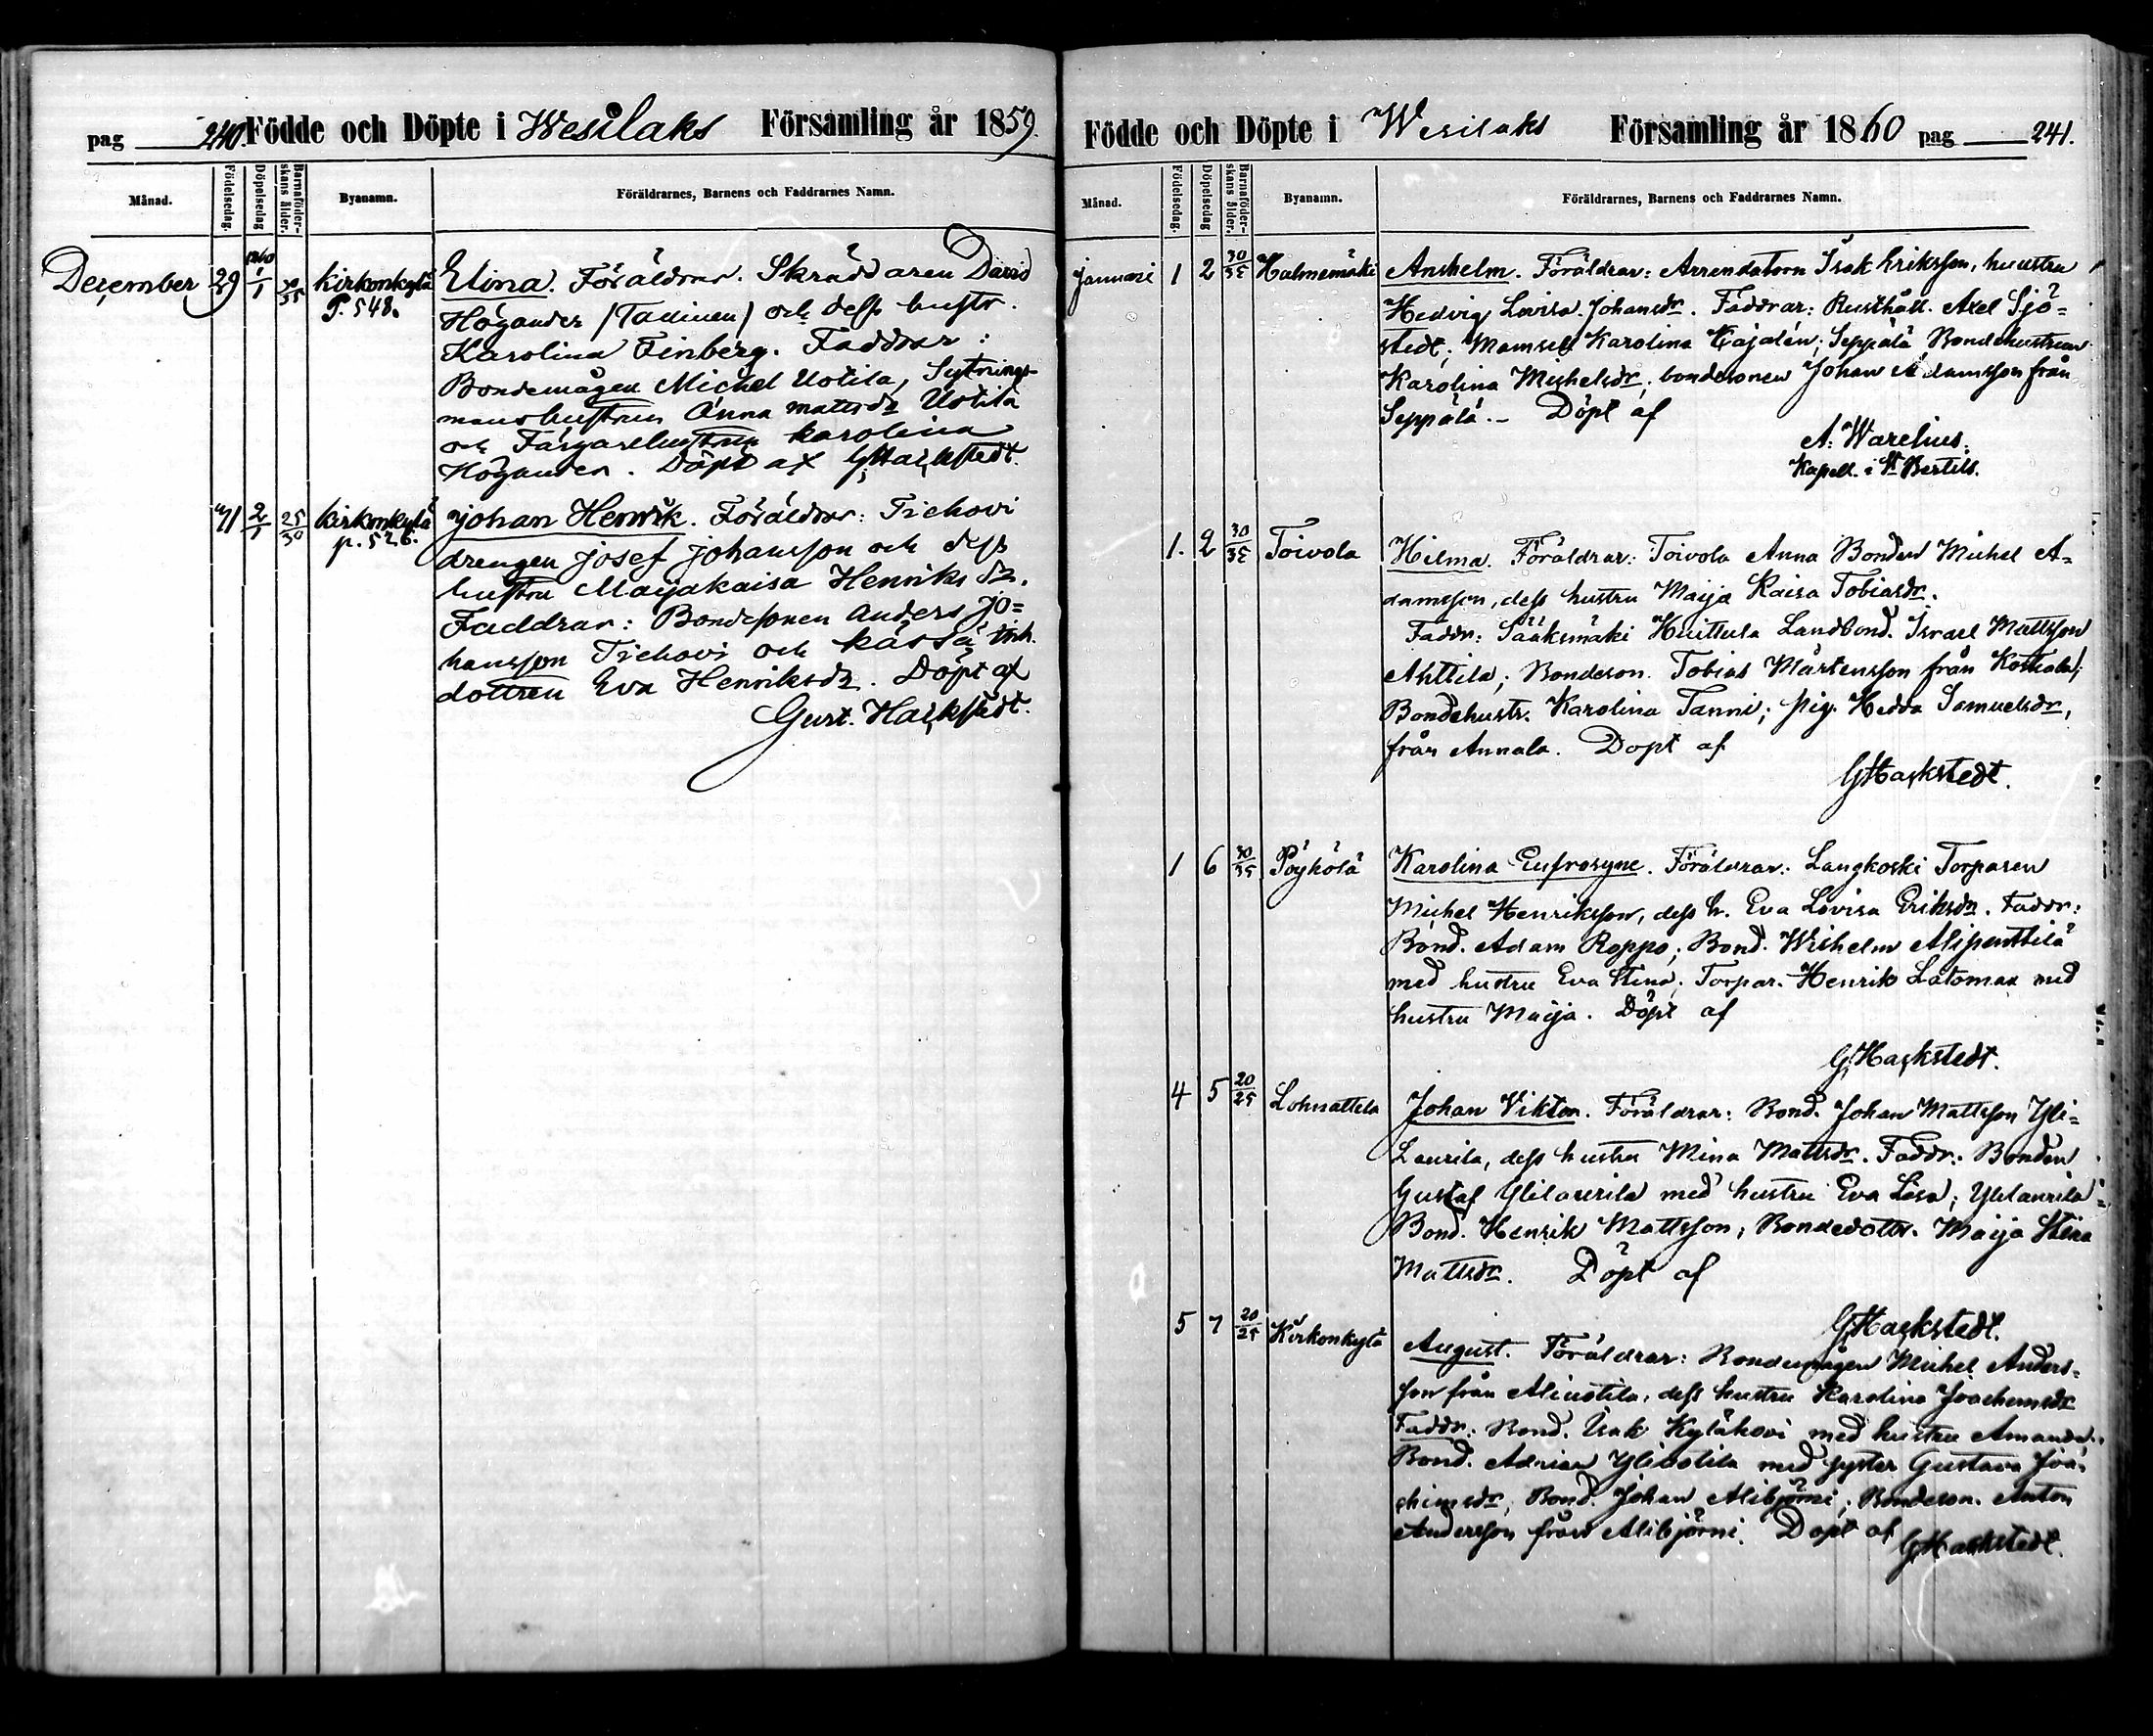 pag 240. Födde och Döpte i Wesilaks Församling år 1859.
Månad. Födelsedag. Döpelsedag Barnaföderskans ålder. Byanamn. Föräldrarnes, Barnens och Faddrarnes Namn.
December 29 1860 1/1 30/35 Kirkonkylä Elina. Föräldrar. Skräddaren David
P. 548. Högander (Taninen) och dess hustr.
Karolina Finberg. Faddrar:
Bondemågen Michel Uotila, Sytnings-
manshustrun Anna mattsdr Uotila
och Färgarehustrun Karolina
Högander. Döpt af GHackstedt.
31 2/1 25/30 Kirkonkylä Johan Henrik. Föräldrar: Tichovi
p. 526. drengen Josef Johansson och dess
hustru Maijakaisa Henriksdr.
Faddrar: Bondesonen Anders Jo=
hansson Tichovi och Kässä inh.
dottren Eva Henriksdr. Döpt af
Gust. Hackstedt.
Födde och Döpte i Wesilaks Församling år 1860 pag 241.
Månad. Födelsedag. Döpelsedag Barnaföderskans ålder. Byanamn. Föräldrarnes, Barnens och Faddrarnes Namn.
Januari 1 2 30/35 Halmemäki Anshelm. Föräldrar: Arrendatorn Isak Eriksson, hustru
Hedvig Lovisa Johansdr. Faddrar: Rusthåll. Axel Sjö=
stedt; Mamsell Karolina Kajalén; Seppälä Bondehustrun
Karolina Michelsdr; bondesonen Johan Adamsson från
Seppälä. - Döpt af
A. Warelius.
Kapell. i St Bertils.
1. 2 30/35 Toivola Hilma. Föräldrar: Toivola Anna Bonden Michel A=
damsson, dess hustru Maija Kaisa Tobiasdr.
Faddr: Sääksmäki Huittula Landbond. Israel Mattsson
Anttila; Bondeson. Tobias Mårtensson från Kostiala;
Bondehustr. Karolina Tanni; pig. Hedda Samuelsdr,
från Annala. Döpt af
GHackstedt.
1 6 30/35 Pöyhölä Karolina Eufrosyne. Föräldrar: Langkoski Torparen
Michel Henriksson, dess h. Eva Lovisa Eriksdr. Faddr:
Bond. Adam Roppo; Bond. Wilhelm Alipenttilä
med hustru Eva Stina; Torpar. Henrik Latomaa med
hustru Maija. Döpt af
GHackstedt.
4 5 20/25 Lohnattela Johan Viktor. Föräldrar: Bond. Johan Mattsson Yli=
Laurila, dess hustru Mina Mattsdr. Faddr: Bonden
Gustaf Ylilaurila med hustru Eva Lesa; Ylilaurila
Bond. Henrik Mattsson; Bondedottr. Maija Stina
Mattsdr. Döpt af
GHackstedt.
5 7 20/25 Kirkonkylä August. Föräldrar: Bondemågen Michel Anders=
son från Aliuotila, dess hustru Karolina Joachemsdr
Faddr: Bond. Isak Kyläkovi med hustru Amanda;
Bond. Adrian Yliuotila med syster Gustava Joa=
chimsdr; Bond. Johan Alibjörni; Bondeson. Anton
Andersson från Alibjörni. Döpt af GHackstedt.